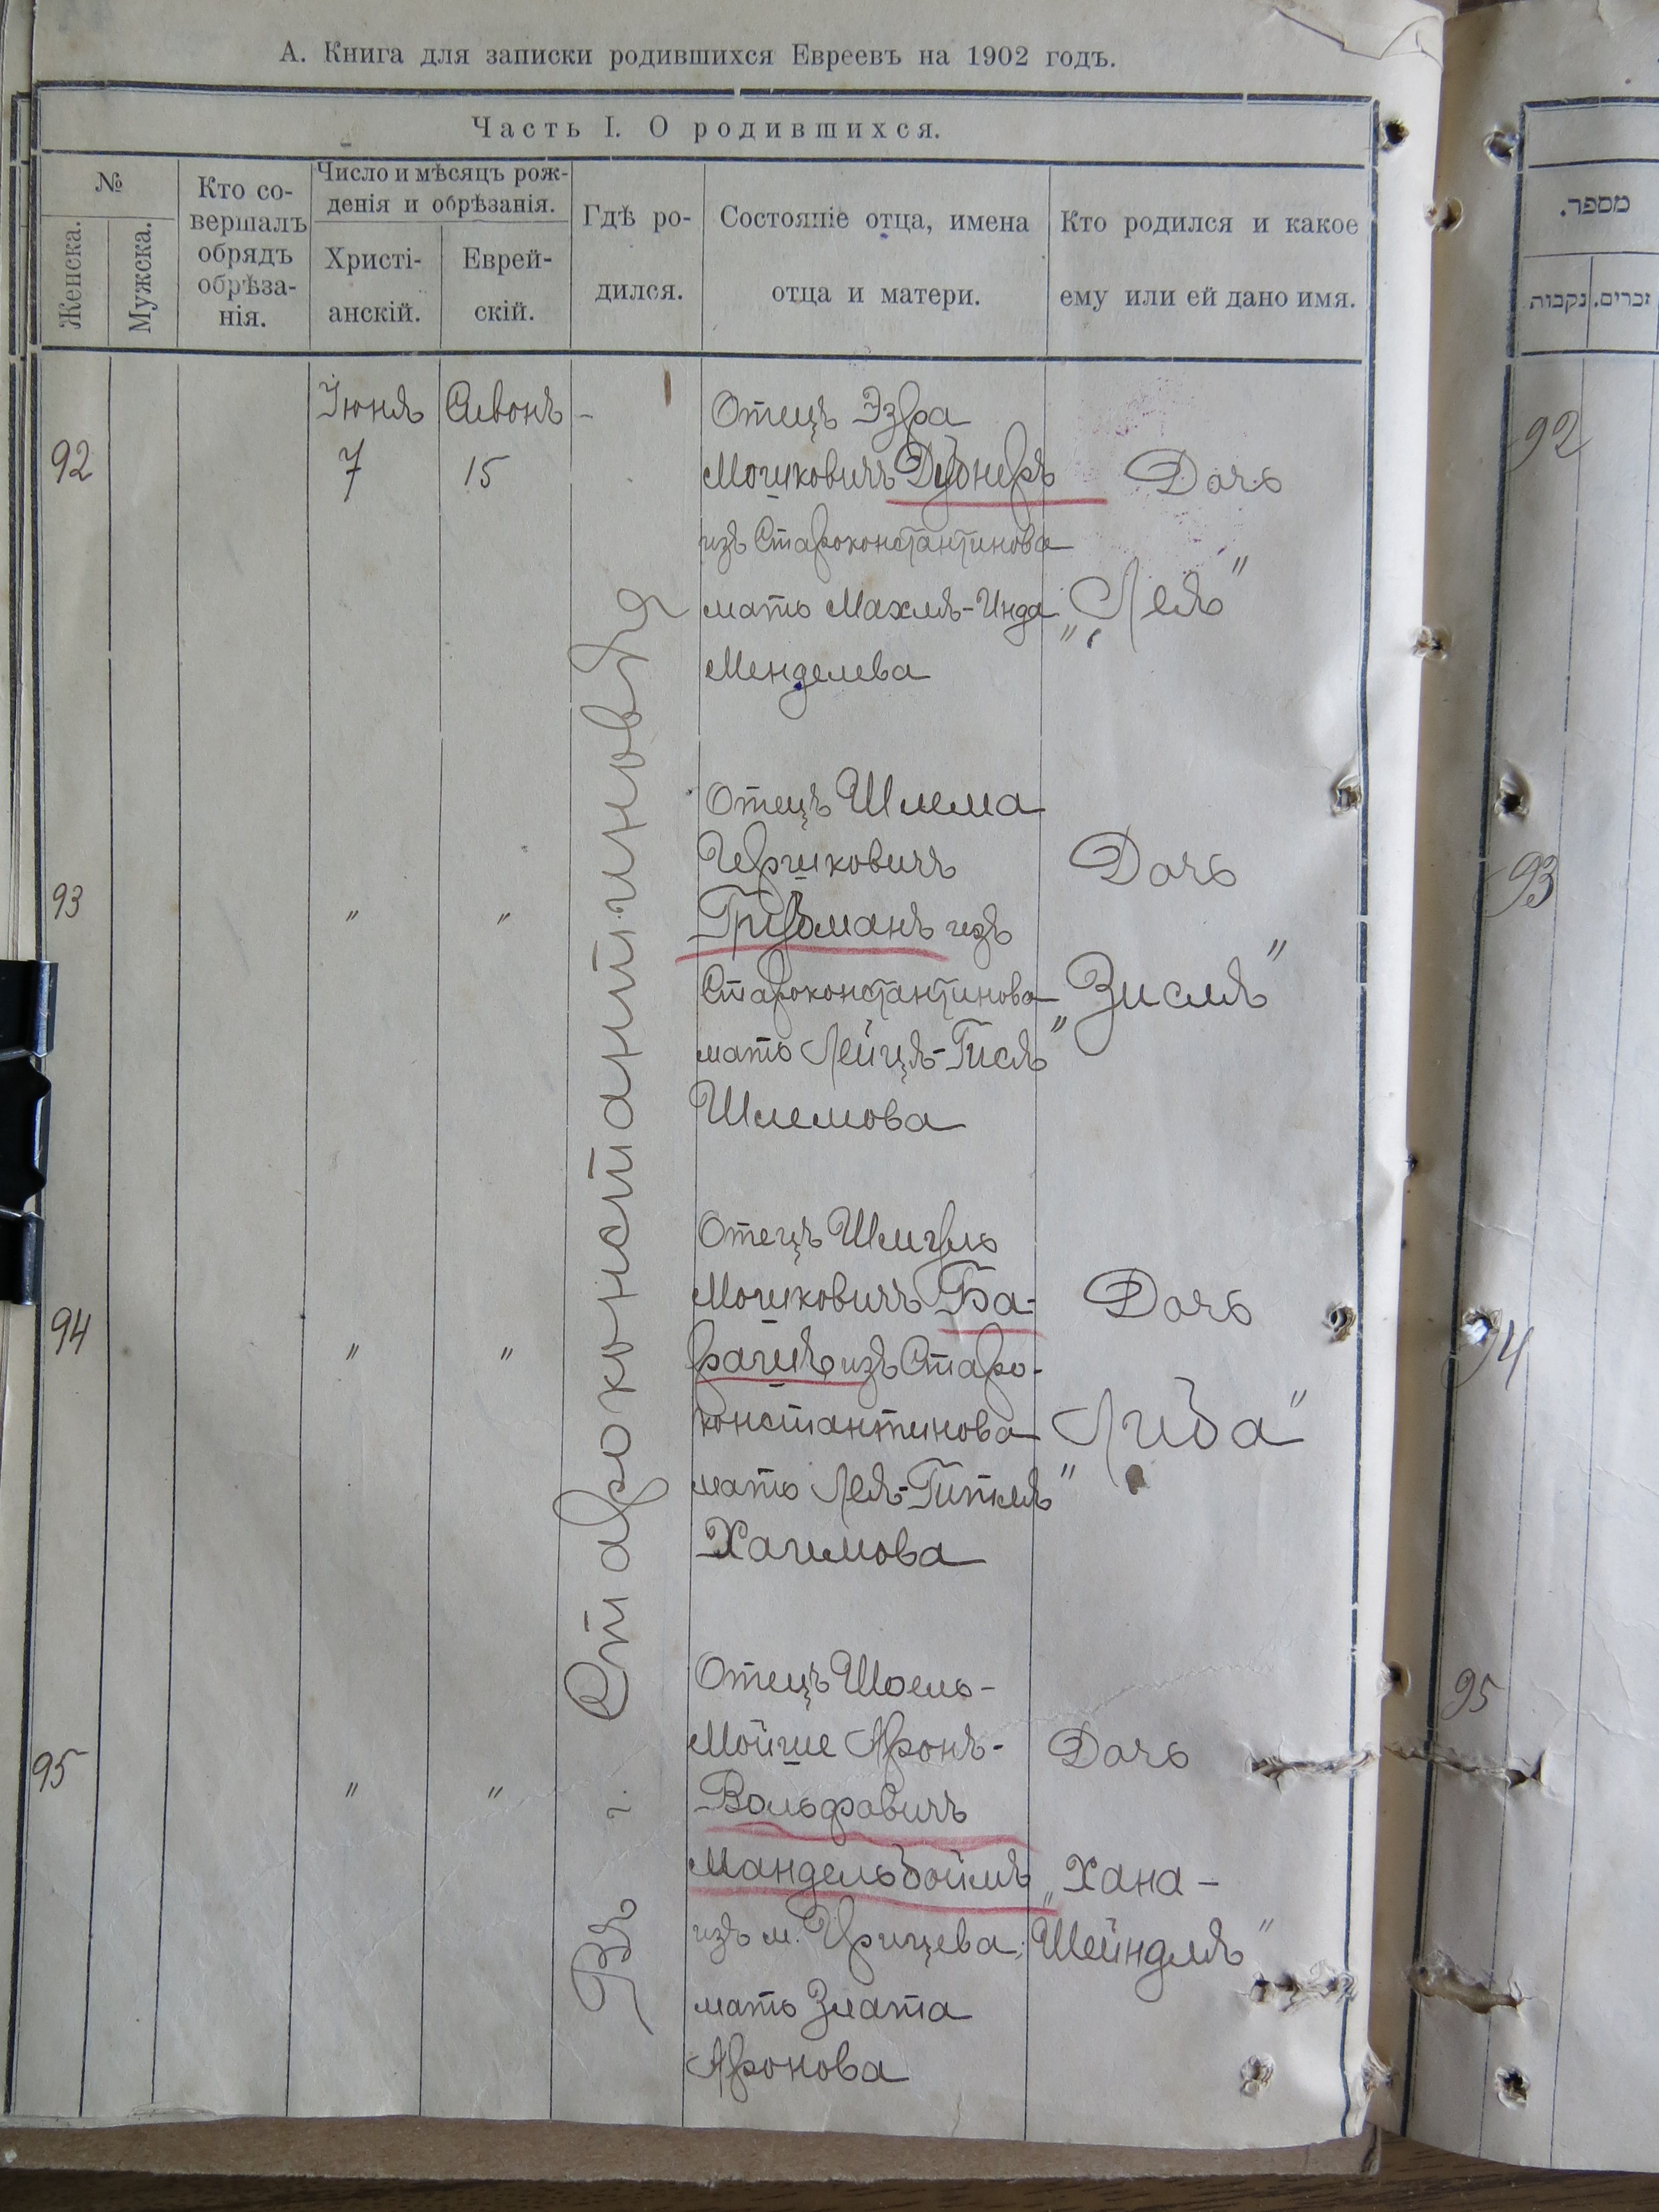 А. Книга для записки родившихся Евреевъ на 1902 годъ.
Часть I. О родившихся.
№
Женска.
Мужска.
Кто со-
вершалъ
обрядъ
обрѣза-
нія.
Число и мѣсяцъ рож-
денія и обрѣзанія.
Христі-
анскій.
Еврей-
скій.
Гдѣ ро-
дился.
Состояніе отца, имена
отца и матери.
Кто родился и какое
ему или ей дано имя.
מספר.
נקבות
זכרים.
Въ г. Староконстантиновѣ
92
Іюня
7
Сивонъ
15
Отецъ Эзра
Мошковичъ
изъ Староконстантинова
мать Махля-Инда
Менделева
Дочь
„Лея"
92
93
"
"
Отецъ Шлема
Гершковичъ
изъ
Староконстантинова
мать Лейця-Гися
Шлемова
Дочь
„Зисля"
93
94
"
"
Отецъ
Мошковичъ Ба-
рашъ изъ Старо-
константинова
мать Лея-Гитля
Хаимова
Дочь
„Либа"
94
95
"
"
Отецъ Шоель-
Мойше Аронъ-
Вольфовичъ
Мандельбоймъ
изъ м. Грицева;
мать Злата
Аронова
Дочь
„Хана-
Шейндля"
95